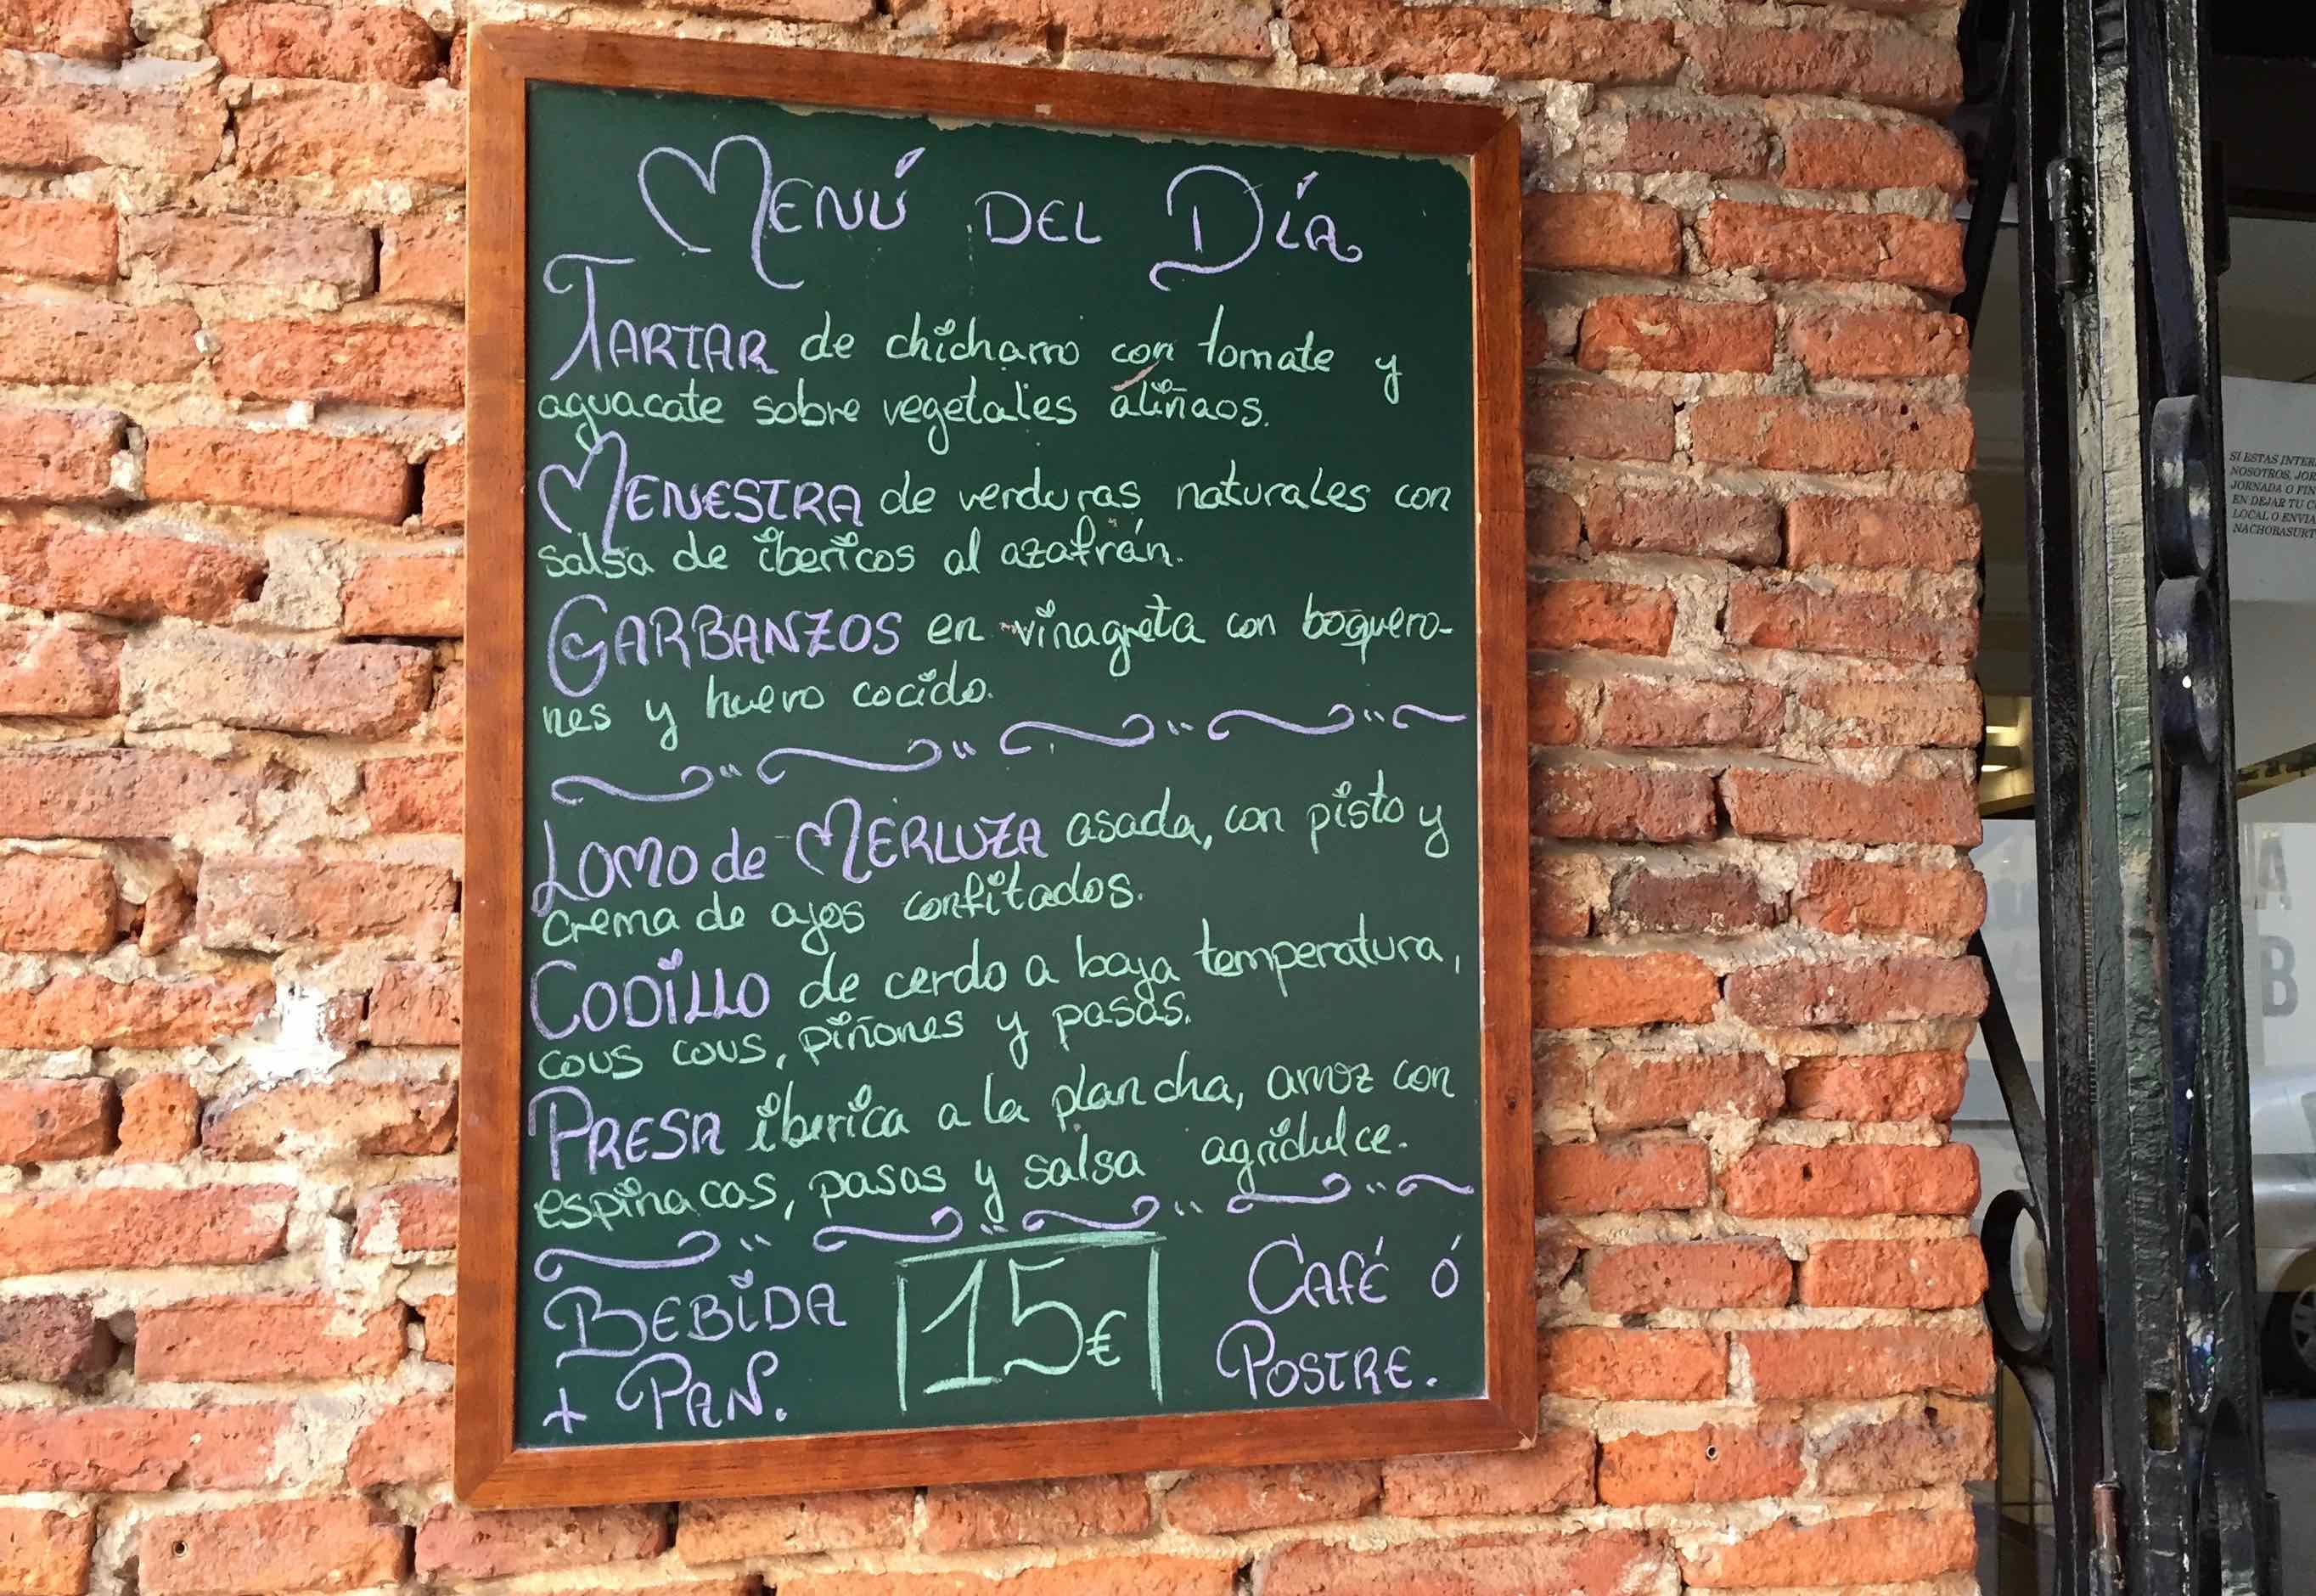 MENÚ DEL DÍA
TARTAR de chicharro con tomate y
aguacate sobre vegetales aliñaos.
MENESTRA de verduras naturales con
salsa de ibericos al azafrán.
GARBANZOS en vinagreta con boquero-
nes y huevo cocido.
LOMO de MERLUZA asada, con pisto y
crema de ajos confitados.
CODILLO de cerdo a baja temperatura,
cous cous, piñones y pasas.
PRESA iberica a la plancha, arroz con
espinacas, pasas y salsa agridulce.
BEBIDA
+ PAN.
15€
CAFÉ Ó
POSTRE.
SI ESTAS
NOSOTROS,
JORNADA O
EN DEJAR TU
LOCAL O
A
B